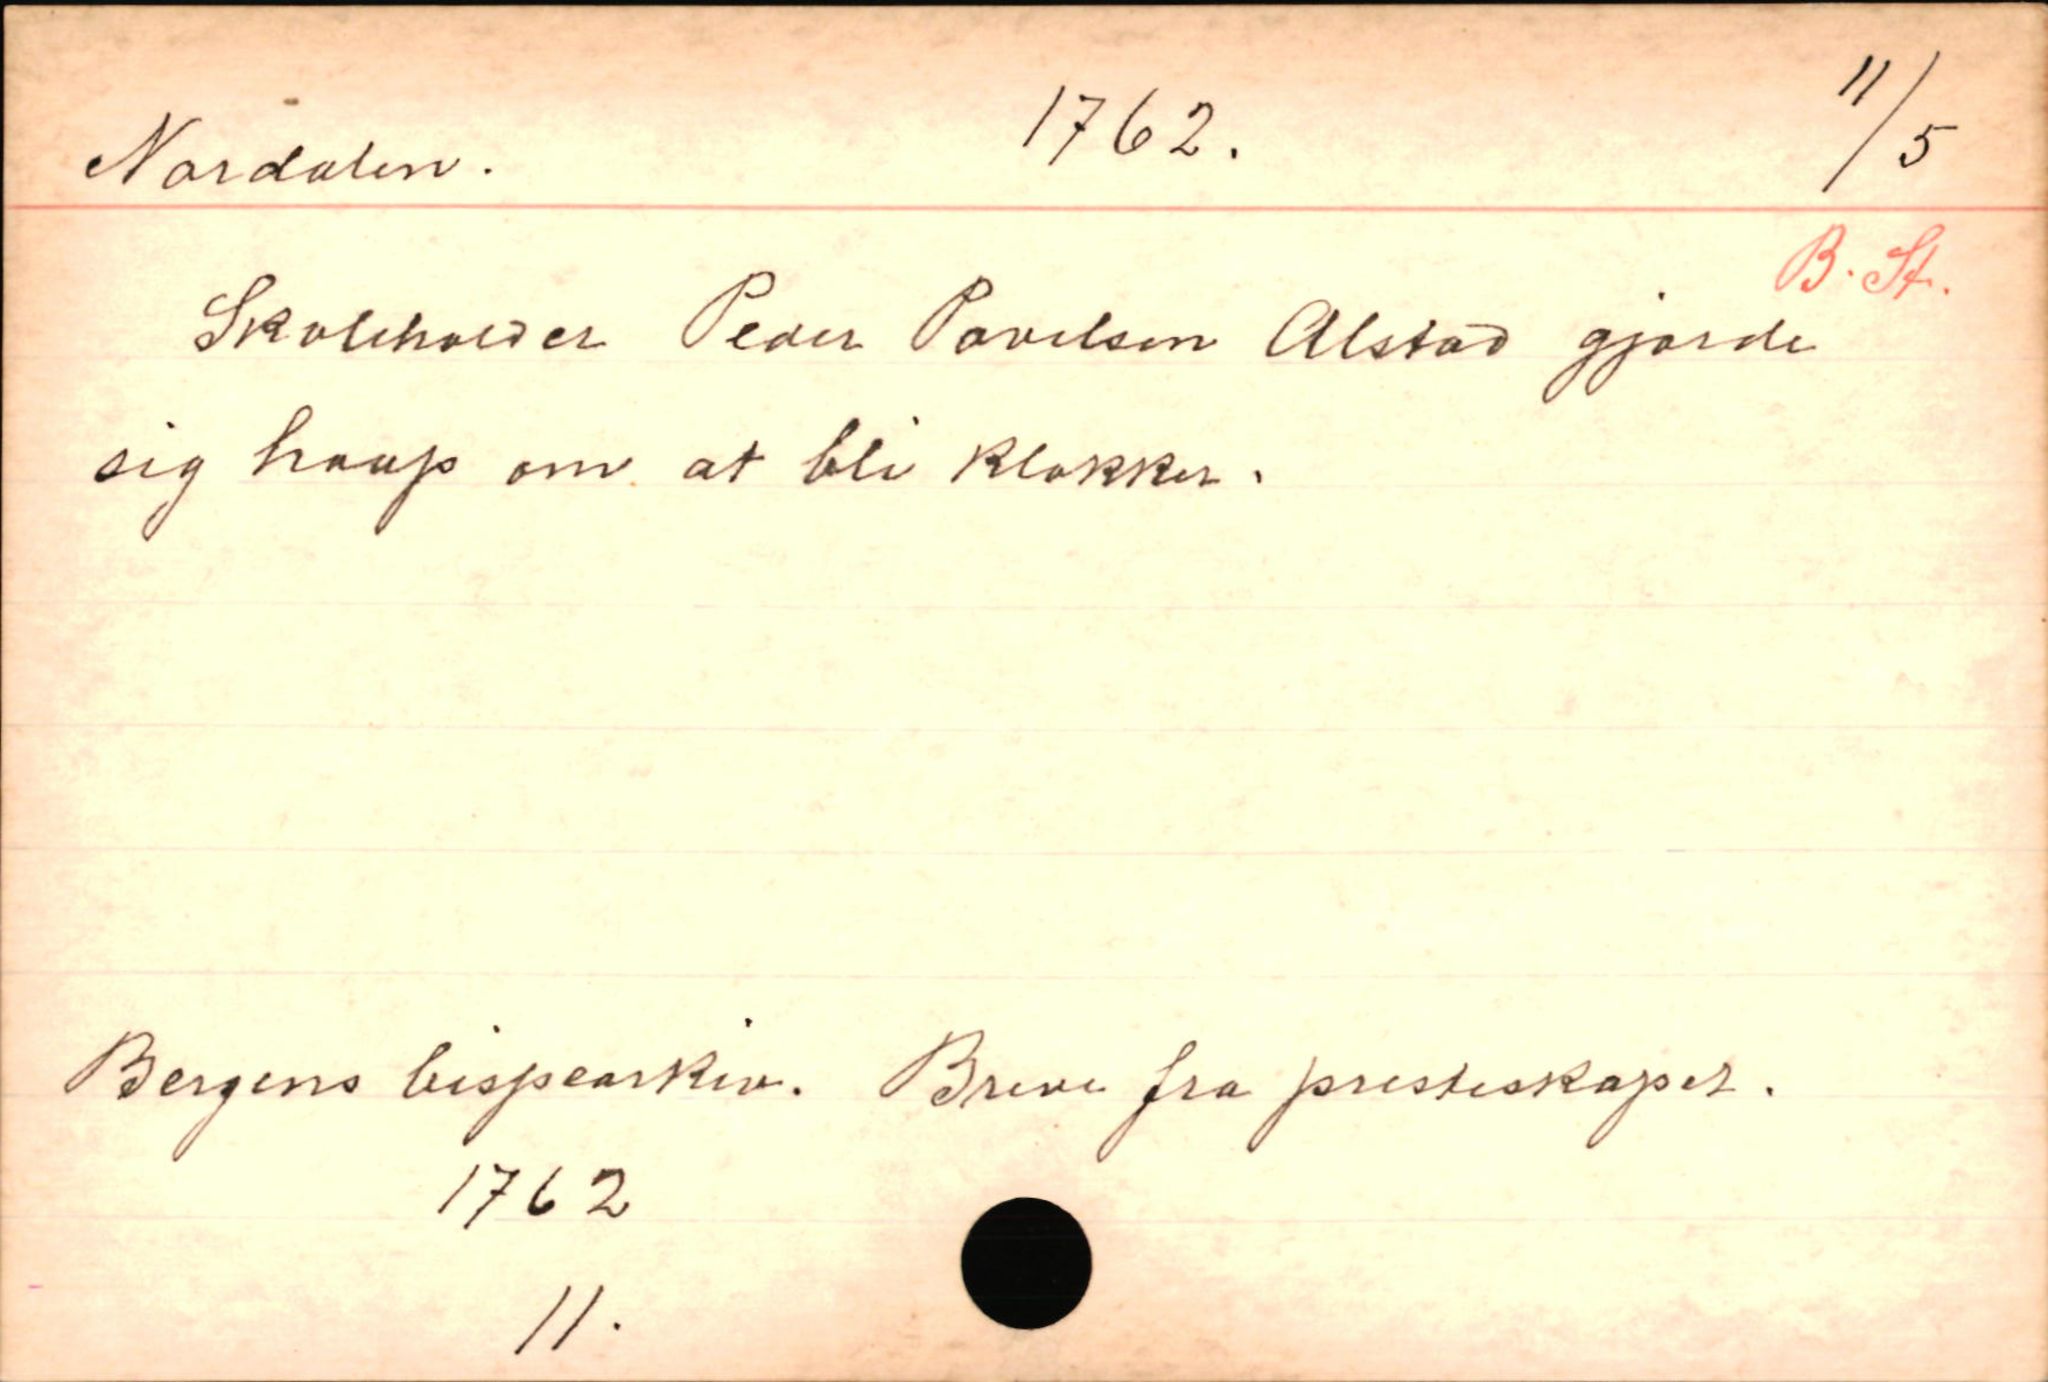 Nordalen. 1762. 11/5
B. St.
Skoleholder Peder Povelsen Alstad gjorde
sig haap om at bli klokker.
Bergens bispearkiv. Breve fra presteskapet.
1762
11.